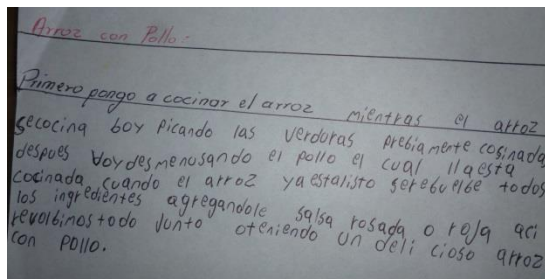 Arroz con Pollo:
Primero pongo a cocinar el arroz mientras el arroz
secocina boy picando las verduras prebiamente cosinada
despues voy desmenusando el pollo el cual llaesta
cocinada cuando el arroz ya estalisto serebuelbe todos
los ingredientes agregandole salsa rosada o roja aci
revolbimos todo junto oteniendo un deli cioso arroz
con pollo.